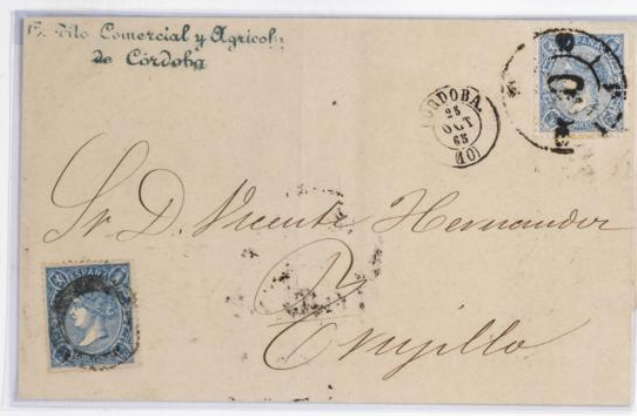 Comercial y Agricola
de Córdoba
ESPAÑA
CORDOBA.
25
OCT
65
(10)
Sr. D. Vicente Hernandez
Trujillo
ESPAÑA